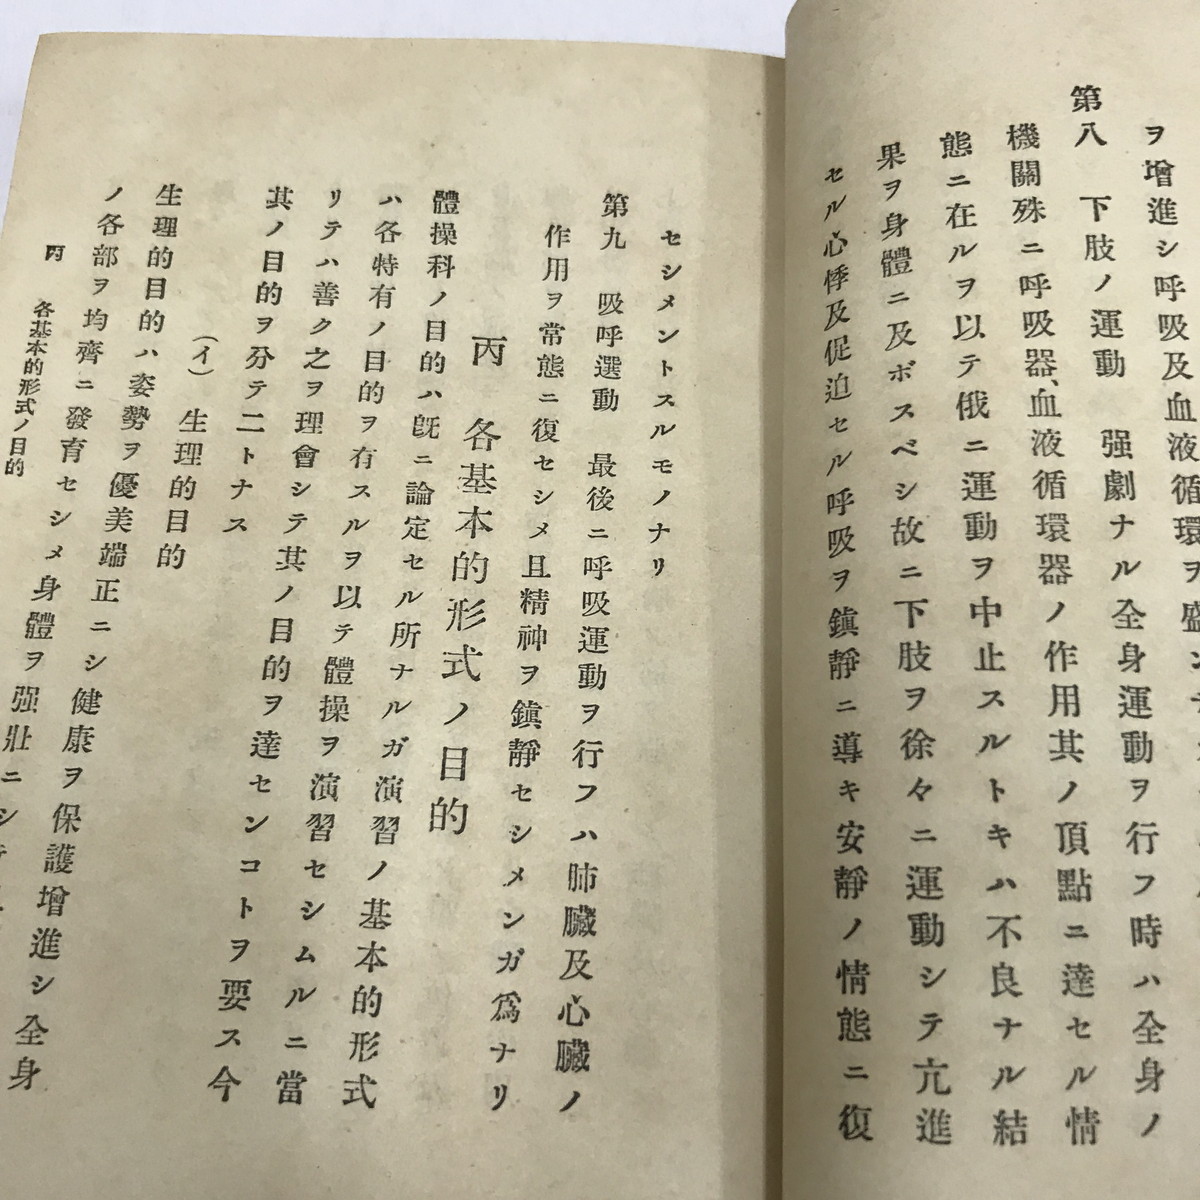 ヲ增進シ呼吸及血液循環ヲ盛ン
第八 下肢ノ運動 强劇ナル全身運動ヲ行フ時ハ全身ノ
機關殊ニ呼吸器、血液循環器ノ作用其ノ頂點ニ達セル情
態ニ在ルヲ以テ俄ニ運動ヲ中止スルトキハ不良ナル結
果ヲ身體ニ及ボスベシ故ニ下肢ヲ徐々ニ運動シテ亢進
セル心悸及促迫セル呼吸ヲ鎭靜ニ導キ安靜ノ情態ニ復
セシメントスルモノナリ
第九 吸呼選動 最後ニ呼吸運動ヲ行フハ肺臟及心臟ノ
作用ヲ常態ニ復セシメ且精神ヲ鎭靜セシメンガ爲ナリ
丙 各基本的形式ノ目的
體操科ノ目的ハ旣ニ論定セル所ナルガ演習ノ基本的形式
ハ各特有ノ目的ヲ有スルヲ以テ體操ヲ演習セシムルニ當
リテハ善ク之ヲ理會シテ其ノ目的ヲ達センコトヲ要ス今
其ノ目的ヲ分テ二トナス
(イ) 生理的目的
生理的目的ハ姿勢ヲ優美端正ニシ健康ヲ保護增進シ全身
ノ各部ヲ均齊ニ發育セシメ身體ヲ强壯ニシ
丙 各基本的形式ノ目的